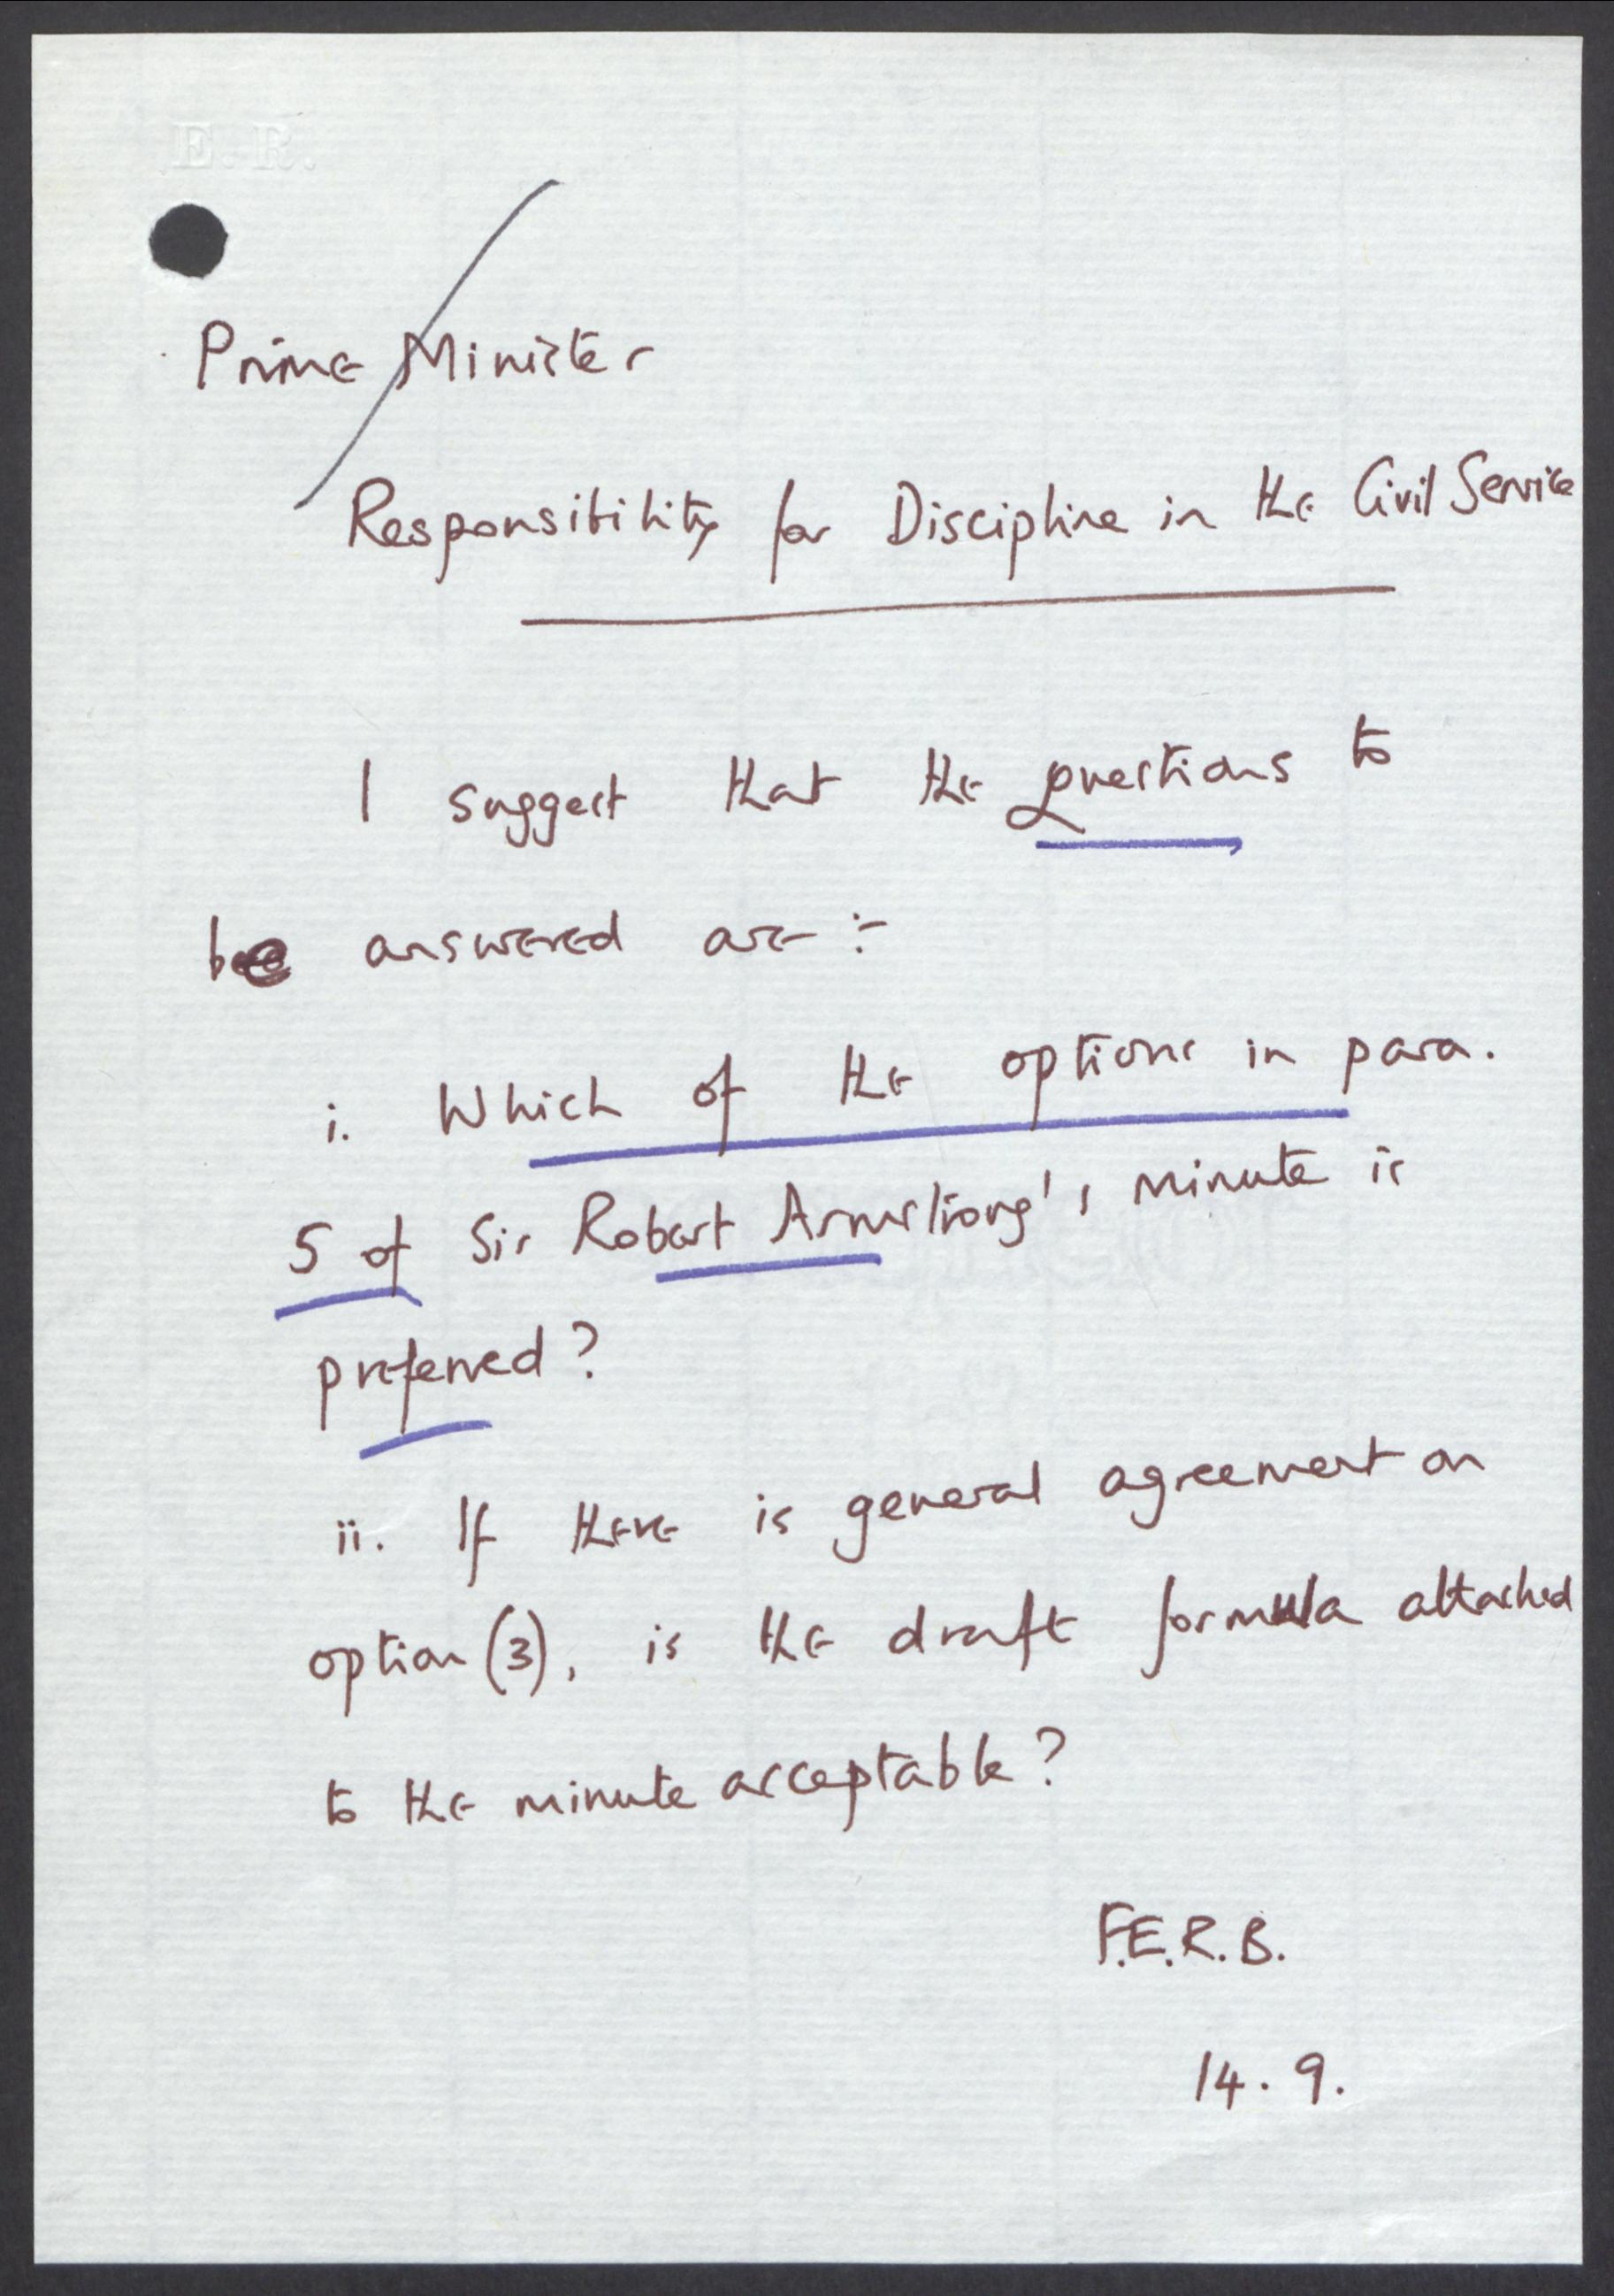 E.R.
Prime Minister
Responsibility for Discipline in the Civil Service
I suggest that the questions to
be answered are :-
i. Which of the options in para.
5 of Sir Robert Armstrong's minute is
preferred?
ii. If there is general agreement on
option (3), is the draft formula attached
to the minute acceptable?
F.E.R.B.
14.9.